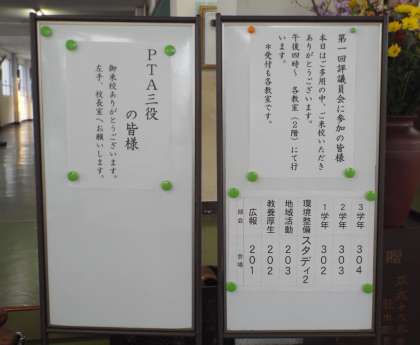 第一回評議員会に参加の皆様
本日はご多用の中、ご来校いただき
ありがとうございます。
午後四時〜　各教室（２階）にて行
います。
＊受付も各教室です。
３学年　３０４
２学年　３０３
１学年　３０２
環境整備　スタディ２
地域活動　２０３
教養厚生　２０２
広報　２０１
部会　会場
ＰＴＡ三役
の皆様
御来校ありがとうございます。
左手、校長室へお願いします。
贈